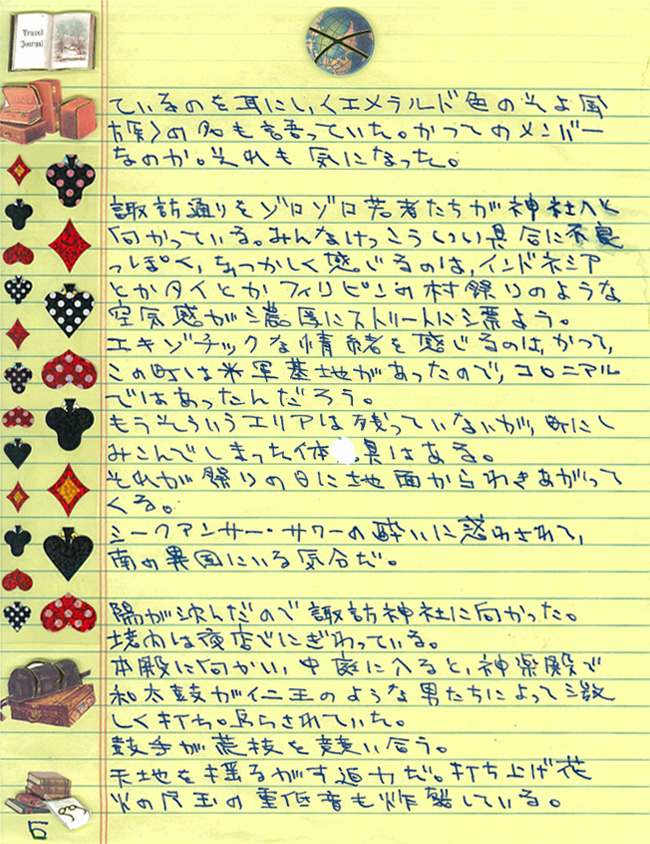 Travel
Journal
ているのを耳にし、〈エメラルド色のそよ風
族〉の名も語っていた。かつてのメンバー
なのか。それも気になった。
諏訪通りをゾロゾロ若者たちが神社へと
向かっている。みんなけっこういい具合に不良
っぽく、なつかしく感じるのは、インドネシア
とかタイとかフィリピンの村祭りのような
空気感が濃厚にストリートに漂よう。
エキゾチックな情緒を感じるのは、かつて、
この町は米軍基地があったので、コロニアル
ではあったんだろう。
もうそういうエリアは残っていないが、町にし
みこんでしまった体 具はある。
それが祭りの日に地面からわきあがって
くる。
シークアンサー・サワーの酔いに惑わされて、
南の異国にいる気分だ。
陽が沈んだので諏訪神社に向かった。
境内は夜店でにぎわっている。
本殿に向かい、中庭に入ると、神楽殿で
和太鼓が仁王のような男たちによって激
しく打ち鳴らされていた。
鼓手が荒技を競い合う。
天地を揺るがす迫力だ。打ち上げ花
火の尺玉の重低音も炸裂している。
5